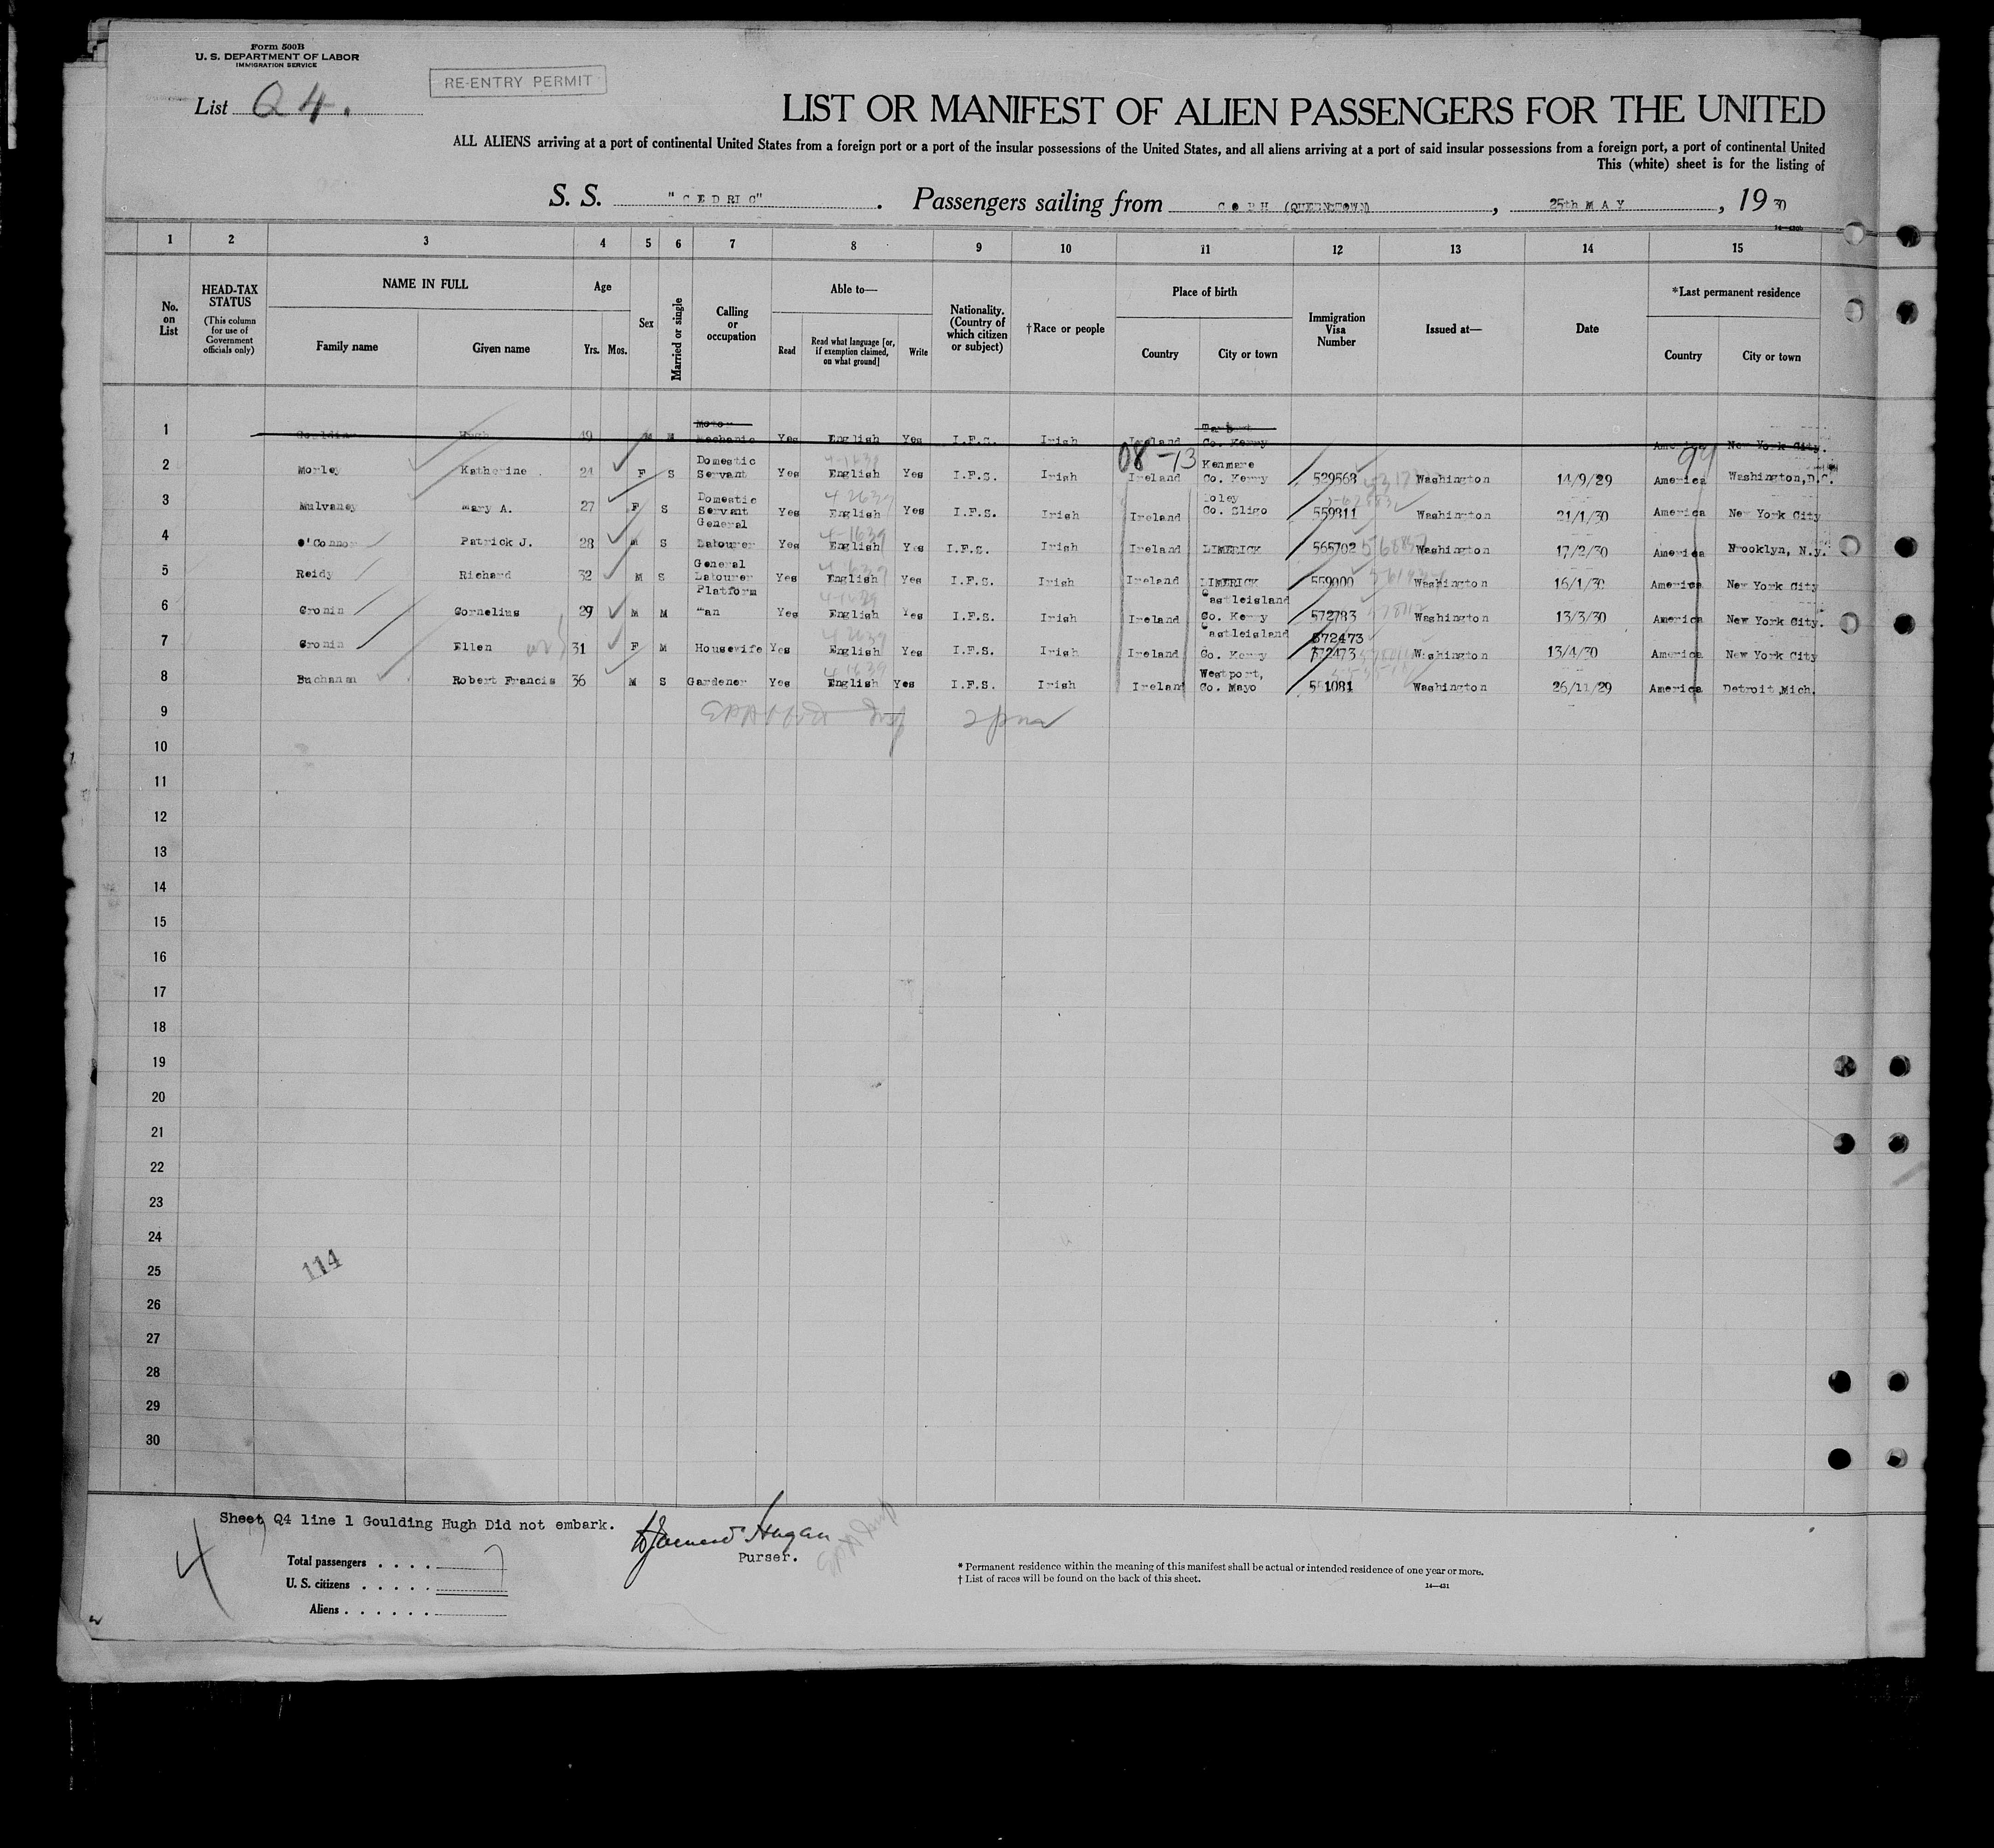 Form 500B
U. S. DEPARTMENT OF LABOR
IMMIGRATION SERVICE
RE-ENTRY PERMIT
List Q4.
LIST OR MANIFEST OF ALIEN PASSENGERS FOR THE UNITED
ALL ALIENS arriving at a port of continental United States from a foreign port or a port of the insular possessions of the United States, and all aliens arriving at a port of said insular possessions from a foreign port, a port of continental United
This (white) sheet is for the listing of
S. S. "CEDRIC" . Passengers sailing from COBH (QUEENSTOWN) , 25th MAY , 19 30
1 2 3 4 5 6 7 8 9 10 11 12 13 14 15
No. on List
HEAD-TAX STATUS
(This column for use of Government officials only)
NAME IN FULL
Family name Given name
Age
Yrs. Mos.
Sex
Married or single
Calling or occupation
Able to—
Read Read what language [or, if exemption claimed, on what ground] Write
Nationality. (Country of which citizen or subject)
†Race or people
Place of birth
Country City or town
Immigration Visa Number
Issued at—
Date
*Last permanent residence
Country City or town
1 Hugh M M Mechanic Yes English Yes I.F.S. Irish Ireland Co. Kerry America New York City.
08-13 99
2 Morley Katherine 24 F S Domestic Servant Yes English Yes I.F.S. Irish Ireland Kenmare Co. Kerry 529568 Washington 14/9/29 America Washington, D.C.
3 Mulvaney Mary A. 27 F S Domestic Servant Yes English Yes I.F.S. Irish Ireland Co. Sligo 559811 Washington 21/1/30 America New York City
4 O'Connor Patrick J. 28 M S General Labourer Yes English Yes I.F.S. Irish Ireland LIMERICK 565702 Washington 17/2/30 America Brooklyn, N.Y.
5 Reidy Richard 32 M S General Labourer Yes English Yes I.F.S. Irish Ireland LIMERICK 559000 Washington 16/1/30 America New York City
6 Cronin Cornelius 29 M M Platform Man Yes English Yes I.F.S. Irish Ireland Castleisland Co. Kerry 572783 Washington 13/3/30 America New York City.
7 Cronin Ellen 31 F M Housewife Yes English Yes I.F.S. Irish Ireland Castleisland Co. Kerry 572473 572473 Washington 13/4/30 America New York City
8 Buchanan Robert Francis 36 M S Gardener Yes English Yes I.F.S. Irish Ireland Westport, Co. Mayo 551081 Washington 26/11/29 America Detroit Mich.
9
10
11
12
13
14
15
16
17
18
19
20
21
22
23
24
114
25
26
27
28
29
30
Sheet Q4 line 1 Goulding Hugh Did not embark.
Purser.
4
Total passengers . . . . 7
U. S. citizens . . . . .
Aliens . . . . . .
* Permanent residence within the meaning of this manifest shall be actual or intended residence of one year or more.
† List of races will be found on the back of this sheet.
14—431